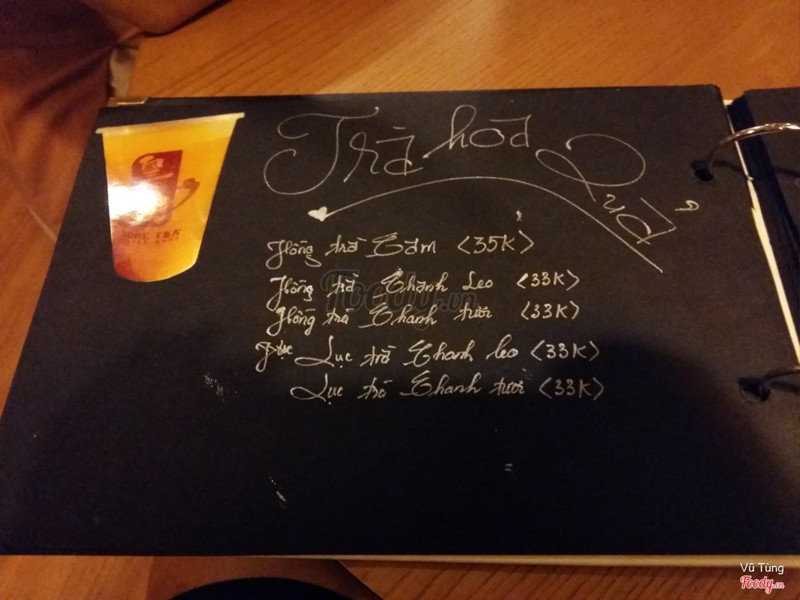 Trà hoa Quả
Hồng trà Cam <35K>
Hồng trà Chanh Leo <33K>
Hồng trà Chanh tươi <33K>
Lục trà Chanh leo <33K>
Lục trà Chanh tươi <33K>
Foody.vn
Vũ Tùng
Foody.vn